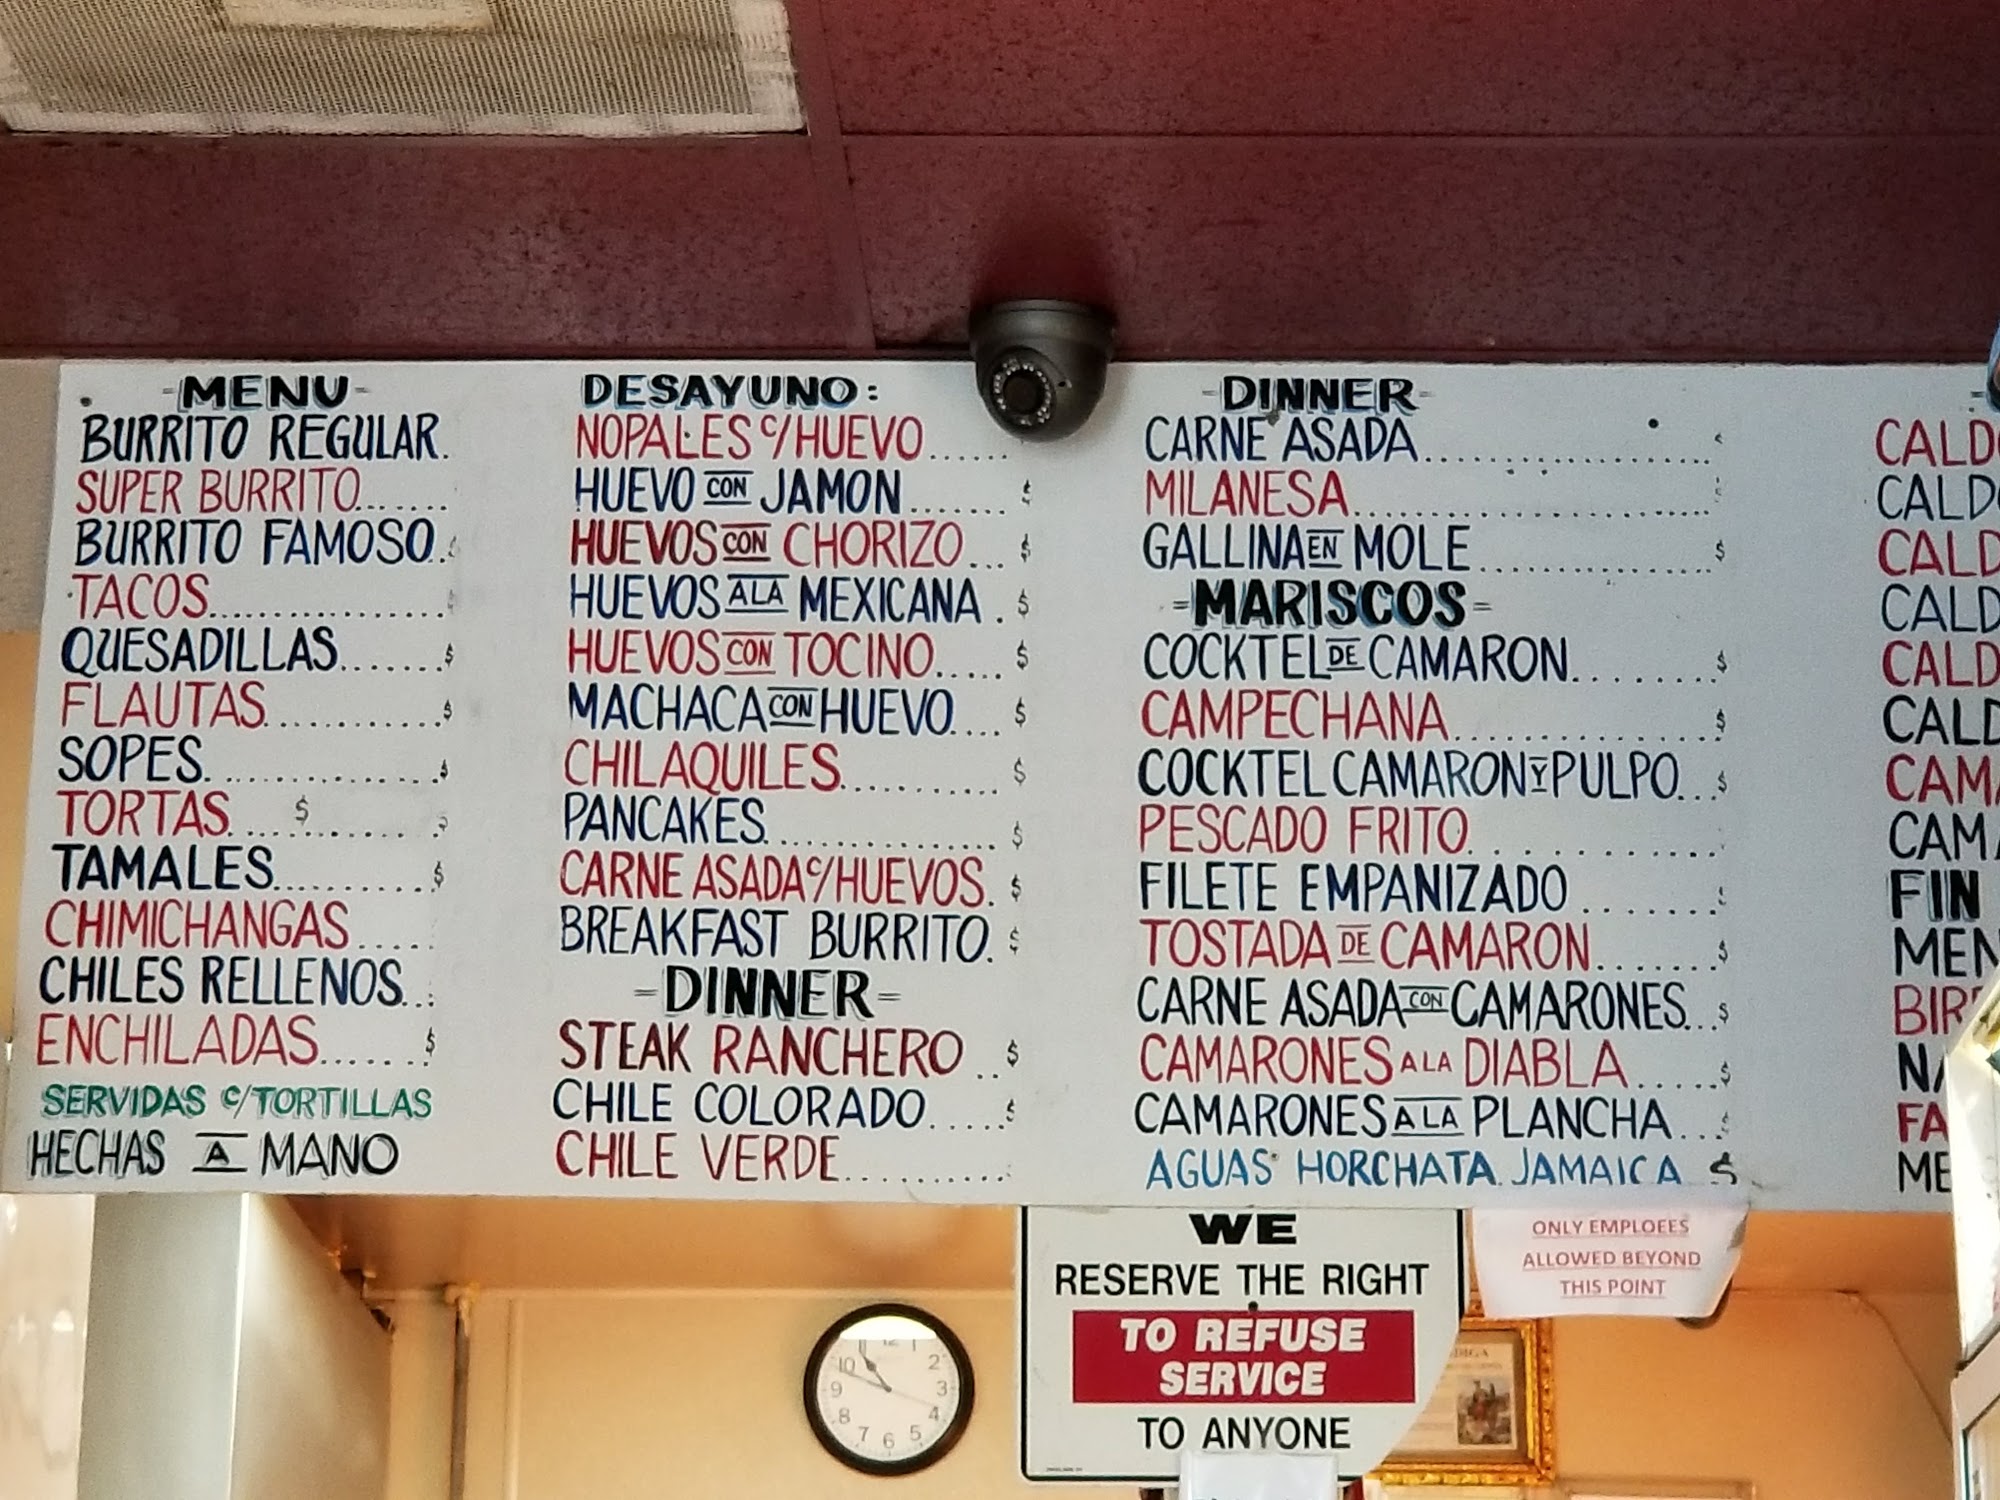 -MENU-
BURRITO REGULAR.
SUPER BURRITO.......
BURRITO FAMOSO..
TACOS..................
QUESADILLAS....... $
FLAUTAS............ $
SOPES................ $
TORTAS.... $ ......
TAMALES.......... $
CHIMICHANGAS.....
CHILES RELLENOS...
ENCHILADAS...... $
SERVIDAS C/TORTILLAS
HECHAS A MANO
DESAYUNO:
NOPALES C/HUEVO......
HUEVO CON JAMON........ $
HUEVOS CON CHORIZO... $
HUEVOS A LA MEXICANA . $
HUEVOS CON TOCINO..... $
MACHACA CON HUEVO.... $
CHILAQUILES........... $
PANCAKES................ $
CARNE ASADA C/HUEVOS. $
BREAKFAST BURRITO. $
-DINNER-
STEAK RANCHERO .. $
CHILE COLORADO..... $
CHILE VERDE...........
-DINNER-
CARNE ASADA......................
MILANESA............................
GALLINA EN MOLE................. $
-MARISCOS-
COCKTEL DE CAMARON......... $
CAMPECHANA................. $
COCKTEL CAMARON Y PULPO... $
PESCADO FRITO. . . . . . . . . . .
FILETE EMPANIZADO .......
TOSTADA DE CAMARON....... $
CARNE ASADA CON CAMARONES... $
CAMARONES A LA DIABLA..... $
CAMARONES A LA PLANCHA...
AGUAS HORCHATA. JAMAICA $
CALD
CALD
CALD
CALD
CALD
CALD
CAM
CAM
FIN
MEN
BIR
NA
FA
ME
WE
RESERVE THE RIGHT
TO REFUSE
SERVICE
TO ANYONE
ONLY EMPLOEES
ALLOWED BEYOND
THIS POINT
12 1 2 3 4 5 6 7 8 9 10